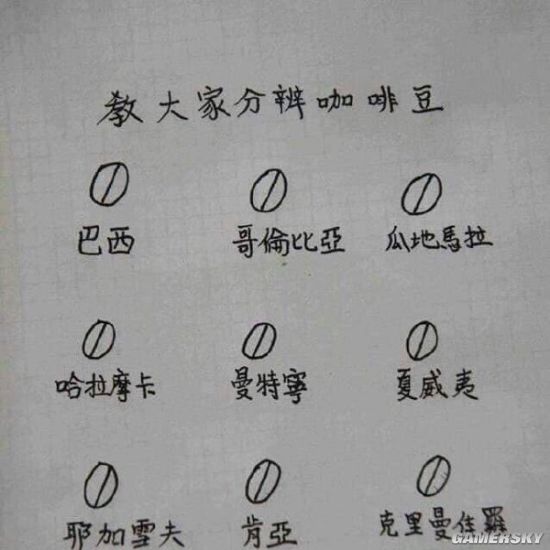 教大家分辨咖啡豆
巴西 哥倫比亞 瓜地馬拉
哈拉摩卡 曼特寧 夏威夷
耶加雪夫 肯亞 克里曼佳羅
GAMERSKY